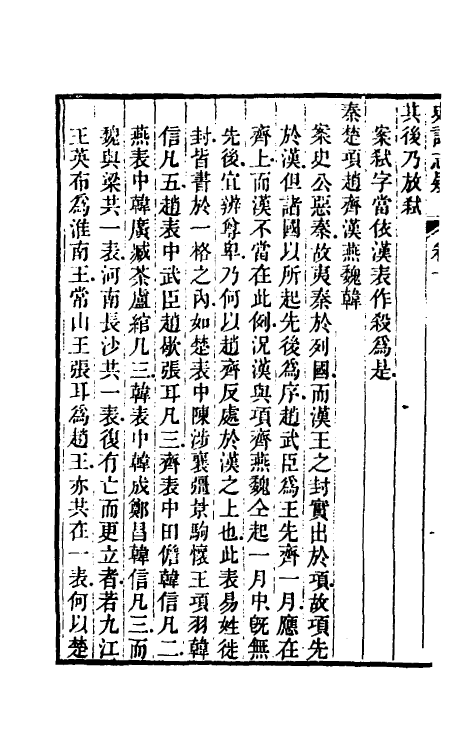 史記志疑 卷十
其後乃放弒
案弒字當依漢表作殺爲是
秦楚項趙齊漢燕魏韓
案史公惡秦故夷秦於列國而漢王之封實出於項故項先
於漢但諸國以所起先後爲序趙武臣爲王先齊一月應在
齊上而漢不當在此例況漢與項齊燕魏仝起一月中旣無
先後宜辨尊卑乃何以趙齊反處於漢之上也此表易姓徙
封皆書於一格之內如楚表中陳涉襄彊景駒懷王項羽韓
信凡五趙表中武臣趙歇張耳凡三齊表中田儋韓信凡二
燕表中韓廣臧荼盧綰凡三韓表中韓成鄭昌韓信凡三而
魏與梁共一表河南長沙共一表復有亡而更立者若九江
王英布爲淮南王常山王張耳爲趙王亦共在一表何以楚